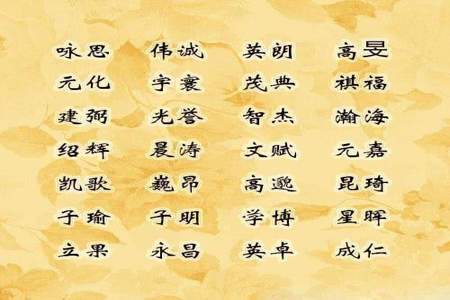 咏思 伟诚 英朗 高旻
元化 宇寰 茂典 祺福
建弼 光誉 智杰 瀚海
绍辉 晨涛 文赋 元嘉
凯歌 巍昂 高邈 昆琦
子瑜 子明 学博 星晖
立果 永昌 英卓 成仁